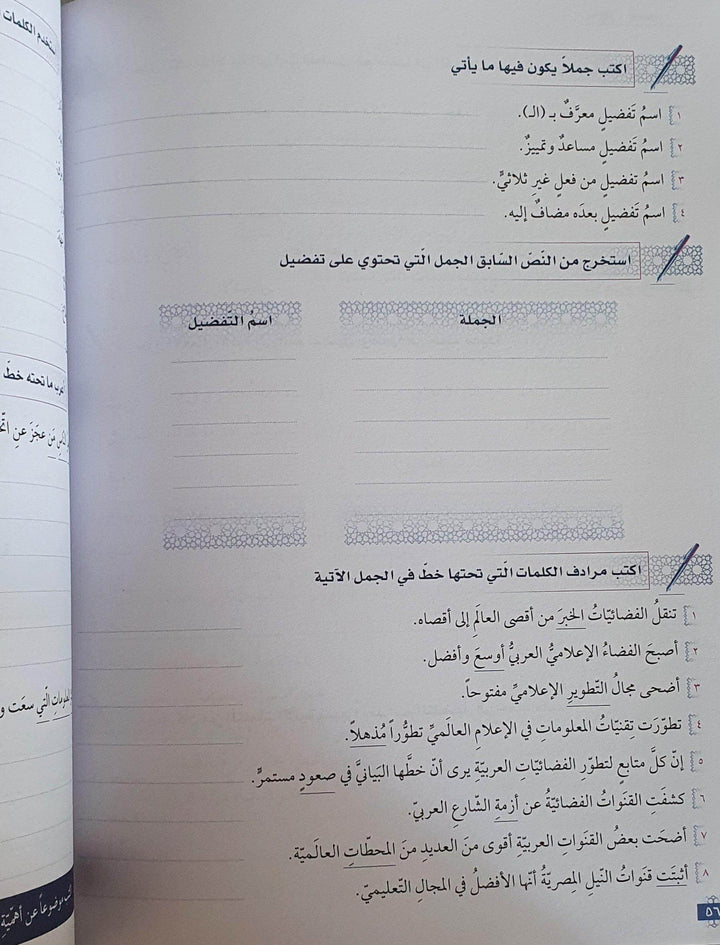 اكتب جملاً يكون فيها ما يأتي
١ اسمُ تَفضيلٍ معرَّفٌ بـ (الـ).
٢ اسمُ تَفضيلٍ مساعدٌ وتمييزٌ.
٣ اسمُ تفضيلٍ من فعلٍ غيرِ ثلاثيٍّ.
٤ اسمُ تَفضيلٍ بعدَه مضافٌ إليه.
استخرج من النّصّ السّابق الجمل الّتي تحتوي على تفضيل
الجملة
اسمُ التّفضيل
اكتب مرادف الكلمات الّتي تحتها خطّ في الجمل الآتية
١ تنقلُ الفضائيّاتُ الخبرَ من أقصى العالَمِ إلى أقصاه.
٢ أصبحَ الفضاءُ الإعلاميُّ العربيُّ أوسعَ وأفضل.
٣ أضحى مجالُ التّطويرِ الإعلاميِّ مفتوحاً.
٤ تطوّرَت تِقنيّاتُ المعلوماتِ في الإعلامِ العالَميِّ تطوُّراً مُذهلاً.
٥ إنّ كلَّ متابعٍ لتطوّرِ الفضائيّاتِ العربيّةِ يرى أنّ خطَّها البَيانيَّ في صعودٍ مستمرٍّ.
٦ كشفَتِ القنَواتُ الفضائيّةُ عن أزمةِ الشّارعِ العربيّ.
٧ أضحَت بعضُ القنَواتِ العربيّةِ أقوى منَ العديدِ منَ المحطّاتِ العالَميّة.
٨ أثبتَت قنَواتُ النّيلِ المِصريّةُ أنّها الأفضلُ في المجالِ التّعليميّ.
٥٦
ستخدم الكلمات
عرب ما تحته خطّ
مَن عجَزَ عنِ
الّتي سعَت و
موضوعاً عن أهمّيّة